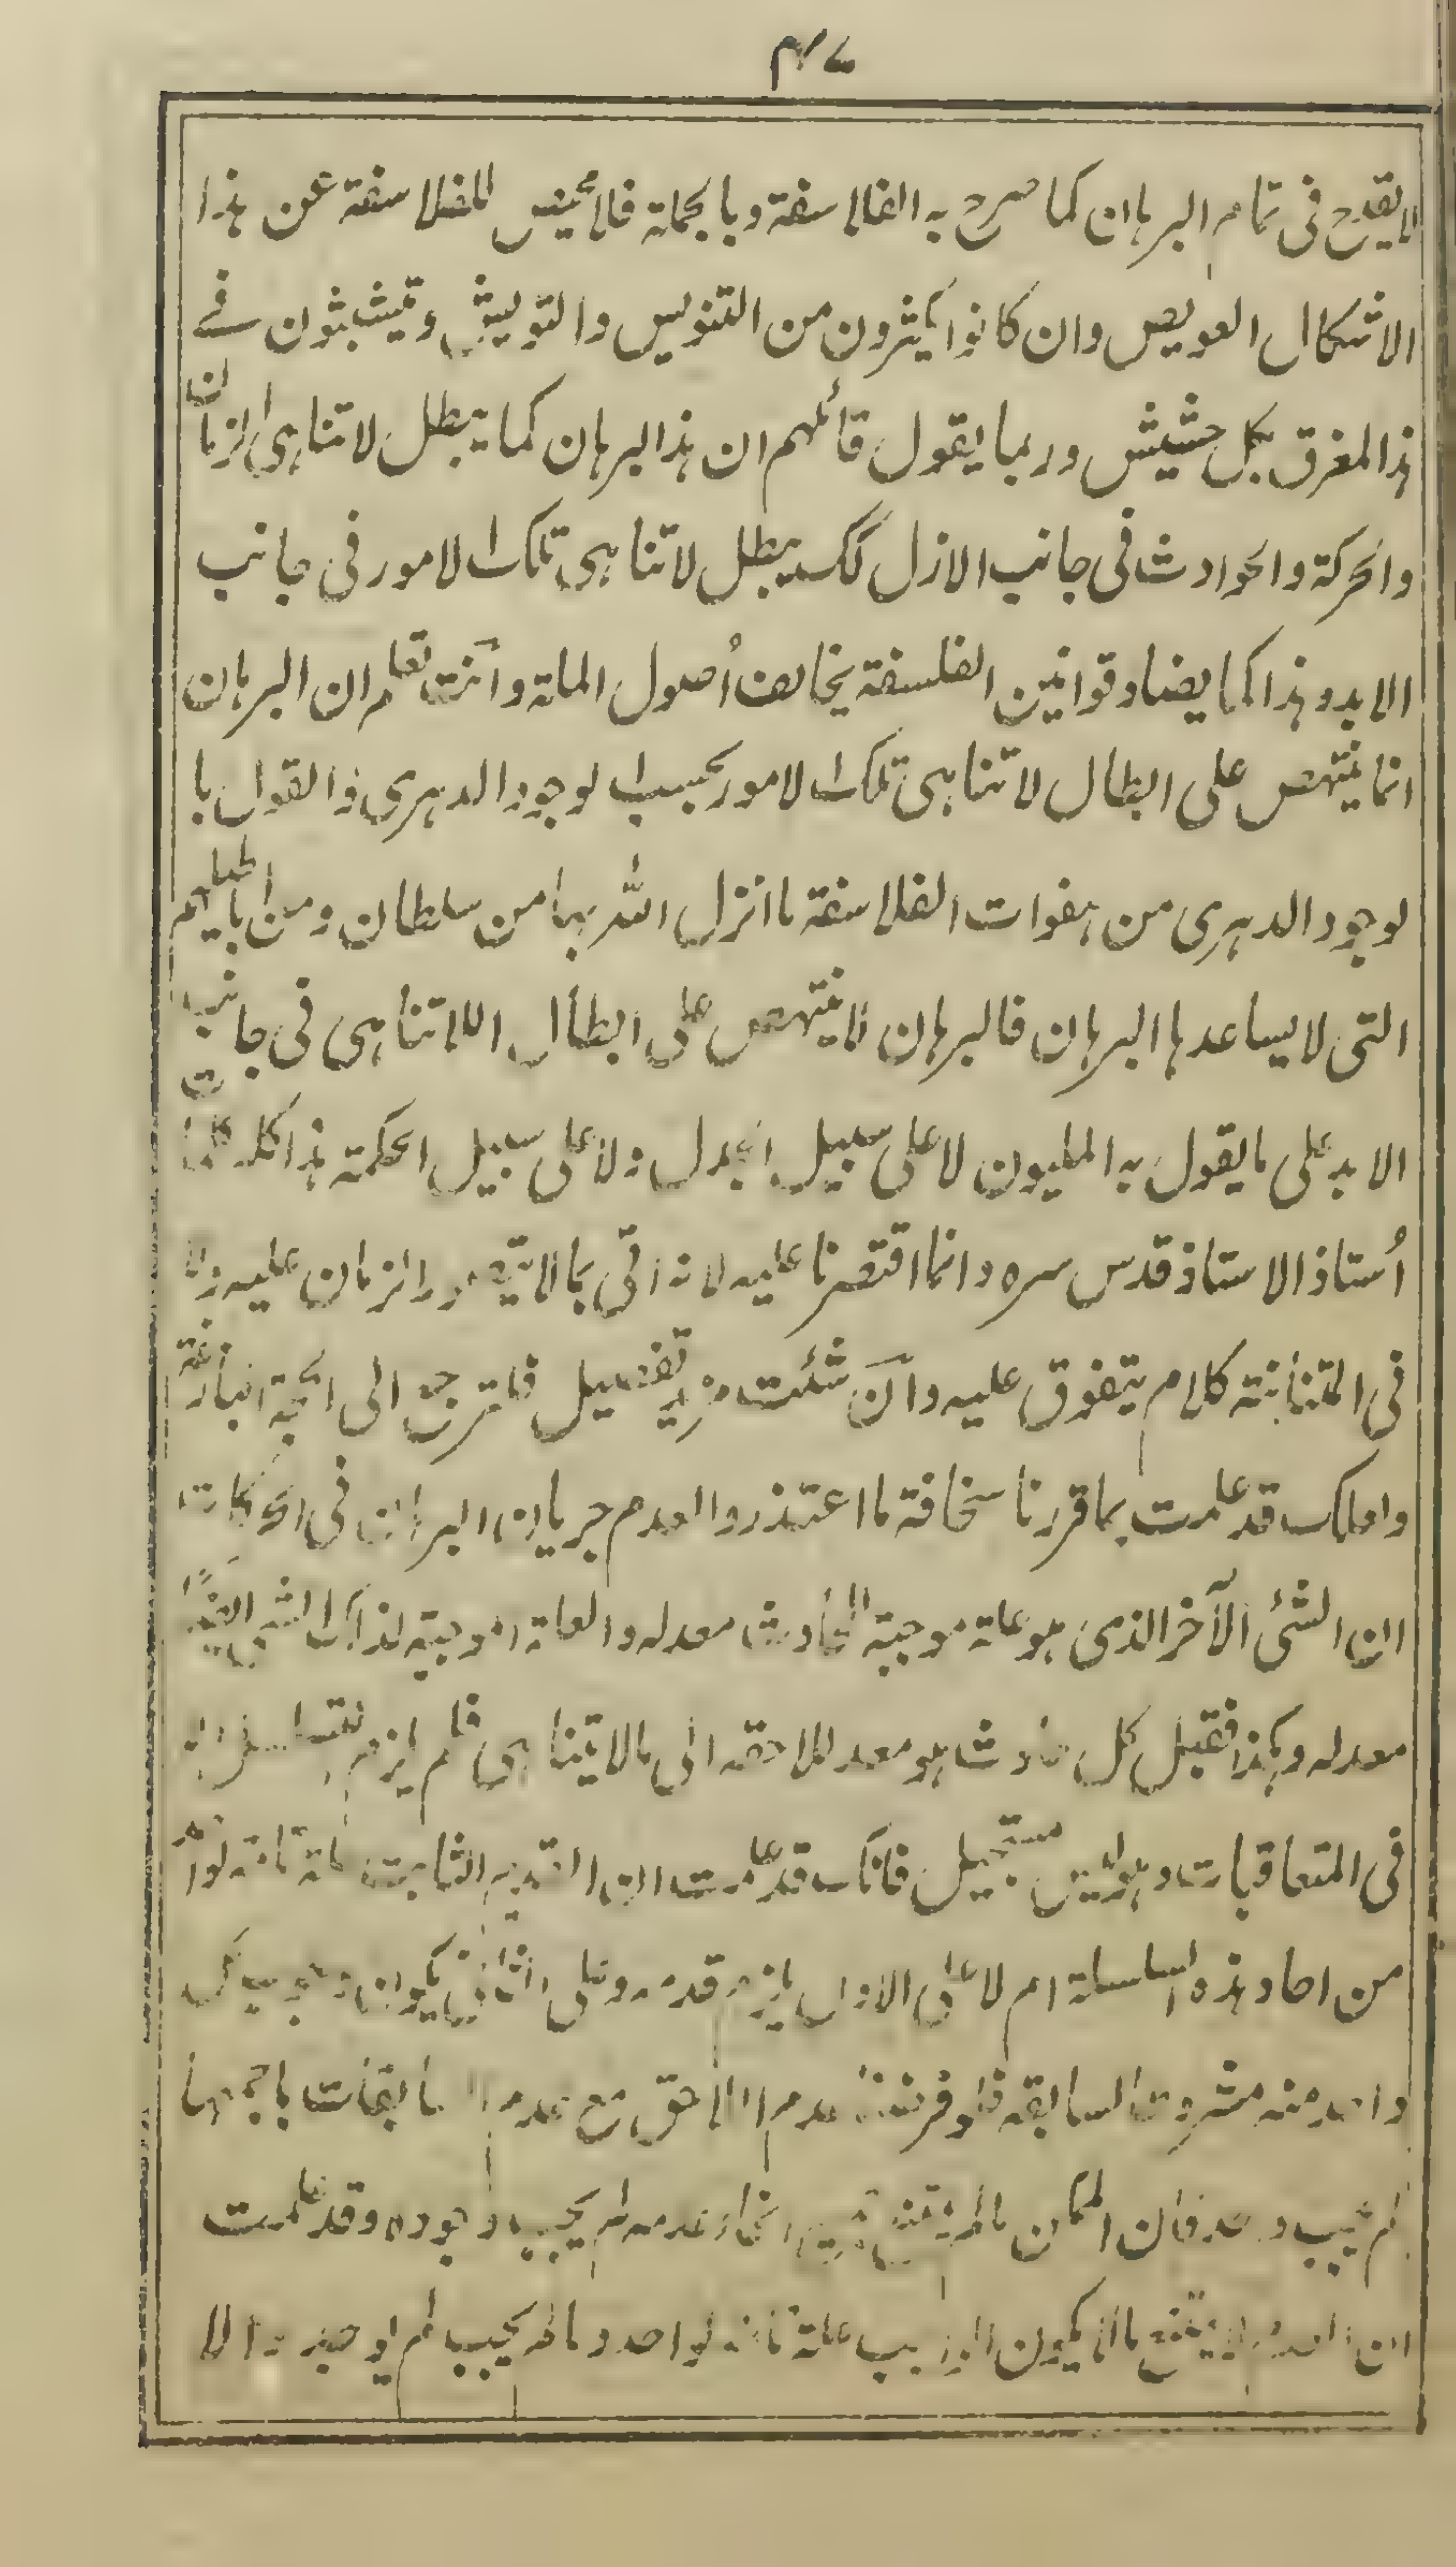 ٤٧
لا يقدح فى تمام البرهان كما صرح به الفلاسفة وبالجملة فلا محيص للفلاسفة عن هذا
الاشكال العويص وان كانوا يكثرون من التنويس والتويش ويتشبثون فے
هذا المغرق بكل حشيش وربما يقول قائلهم ان هذا البرهان كما يبطل لا تناهى الزمان
والحركة والحوادث فى جانب الازل كك يبطل لا تناهى تلك الامور فى جانب
الابد وهذا كما يضاد قوانين الفلسفة يخالف أصول الملة وانت تعلم ان البرهان
انما ينتهض على ابطال لا تناهى تلك الامور بحسب الوجود الدهرى والقول با
لوجود الدهرى من هفوات الفلاسفة ما انزل الله بها من سلطان ومن اباطيلهم
التى لا يساعدها البرهان فالبرهان لا ينتهض على ابطال اللاتناهى فى جانب
الابد على ما يقول به المليون لا على سبيل الجدل ولا على سبيل الحكمة هذا كله كلام
أستاذ الاستاذ قدس سره وانما اقتصرنا عليه لانه اتى بما لا يتصور الزمان عليه ولا
فى المتانة كلام يتفوق عليه وان شئت مزيد تفصيل فلترجع الى الحجة البازغة
ولعلك قد علمت بما قررنا سخافة ما اعتذروا لعدم جريان البرهان فى الحركات
ان الشئ الآخر الذى هو علة موجبة للحادث معد له والعلة الموجبة لذلك الشئ ايضًا
معد له وهكذا فقبل كل حادث هو معد للاحقه الى ما لا يتناهى فلم يلزم التسلسل الا
فى المتعاقبات وهو ليس بمستحيل فانك قد علمت ان القديم الثابت علة تامة لواحد
من احاد هذه السلسلة ام لا على الاول يلزم قدمه وعلى الثانى يكون وجوب كل
واحد منه مشروطا لسابقه فلو فرضنا عدم اللاحق مع عدم السابقات باجمعها
لم يجب وجوده فان الممكن ما لم يمتنع جميع انحاء عدمه لم يجب وجوده وقد علمت
ان العدم لا يمتنع ما لم يكن الواجب علة تامة لواحد وما لم يجب لم يوجد والا